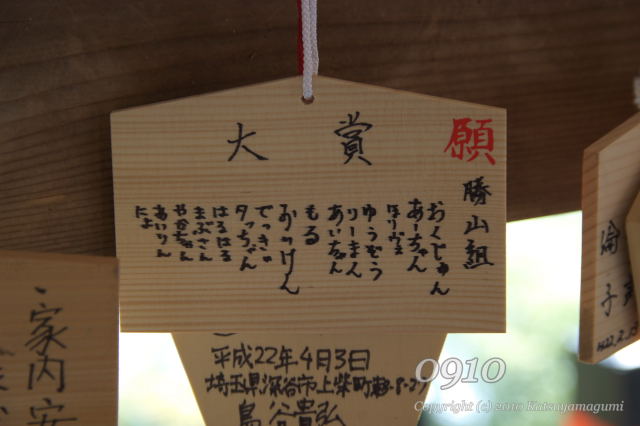 願
大賞
勝山組
おくじゅん
あーちゃん
ほりヴェ
ゆうぞう
りーまん
あいちゃん
もる
おっけん
でっきゃ
タっちゃん
はるはる
まぶさん
や谷ちゃん
あいりん
たよ
平成22年4月3日
埼玉県深谷市上柴町
鳥谷貴弘
家内安
倫子
0910
Copyright (c) 2010 Katsuyamagumi